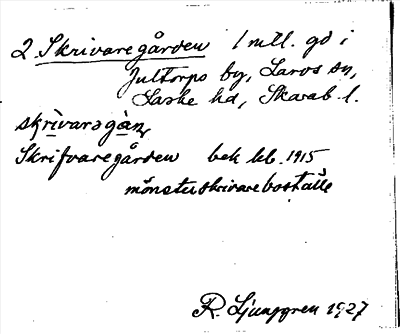 2 Skrivaregården 1 mtl. gd i
Jultorps by, Larvs sn,
Laske hd, Skarab. l.
skrìvaragàn,
Skrifvaregården bek kb. 1915
mönsterskrivareboställe
R. Ljunggren 1927